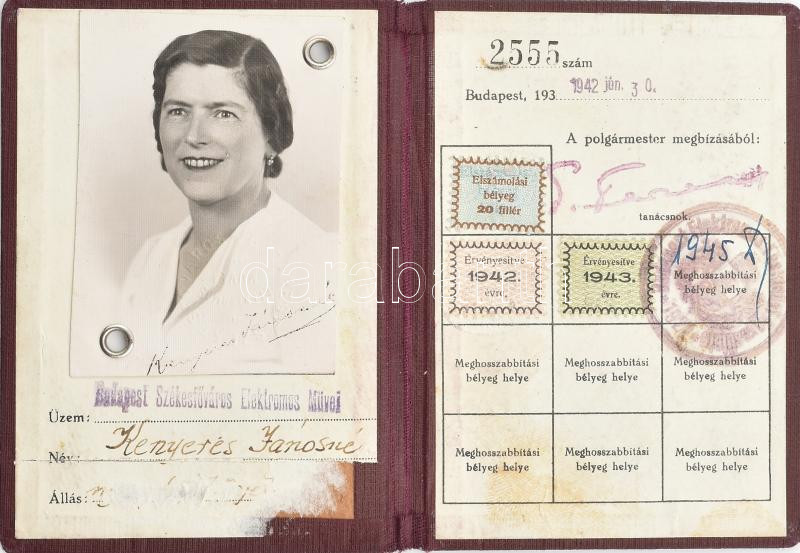 Kenyeres Jánosné
Budapest Székesfőváros Elektromos Művei
Üzem:
Név: Kenyeres Jánosné
Állás:
2555 szám
Budapest, 193 1942 jún. 30.
A polgármester megbízásából:
tanácsnok.
Elszámolási
bélyeg
20 fillér
Érvényesítve
1942.
évre.
Érvényesítve
1943.
évre.
1945
Meghosszabbítási
bélyeg helye
Meghosszabbítási
bélyeg helye
Meghosszabbítási
bélyeg helye
Meghosszabbítási
bélyeg helye
Meghosszabbítási
bélyeg helye
Meghosszabbítási
bélyeg helye
Meghosszabbítási
bélyeg helye
darabanth